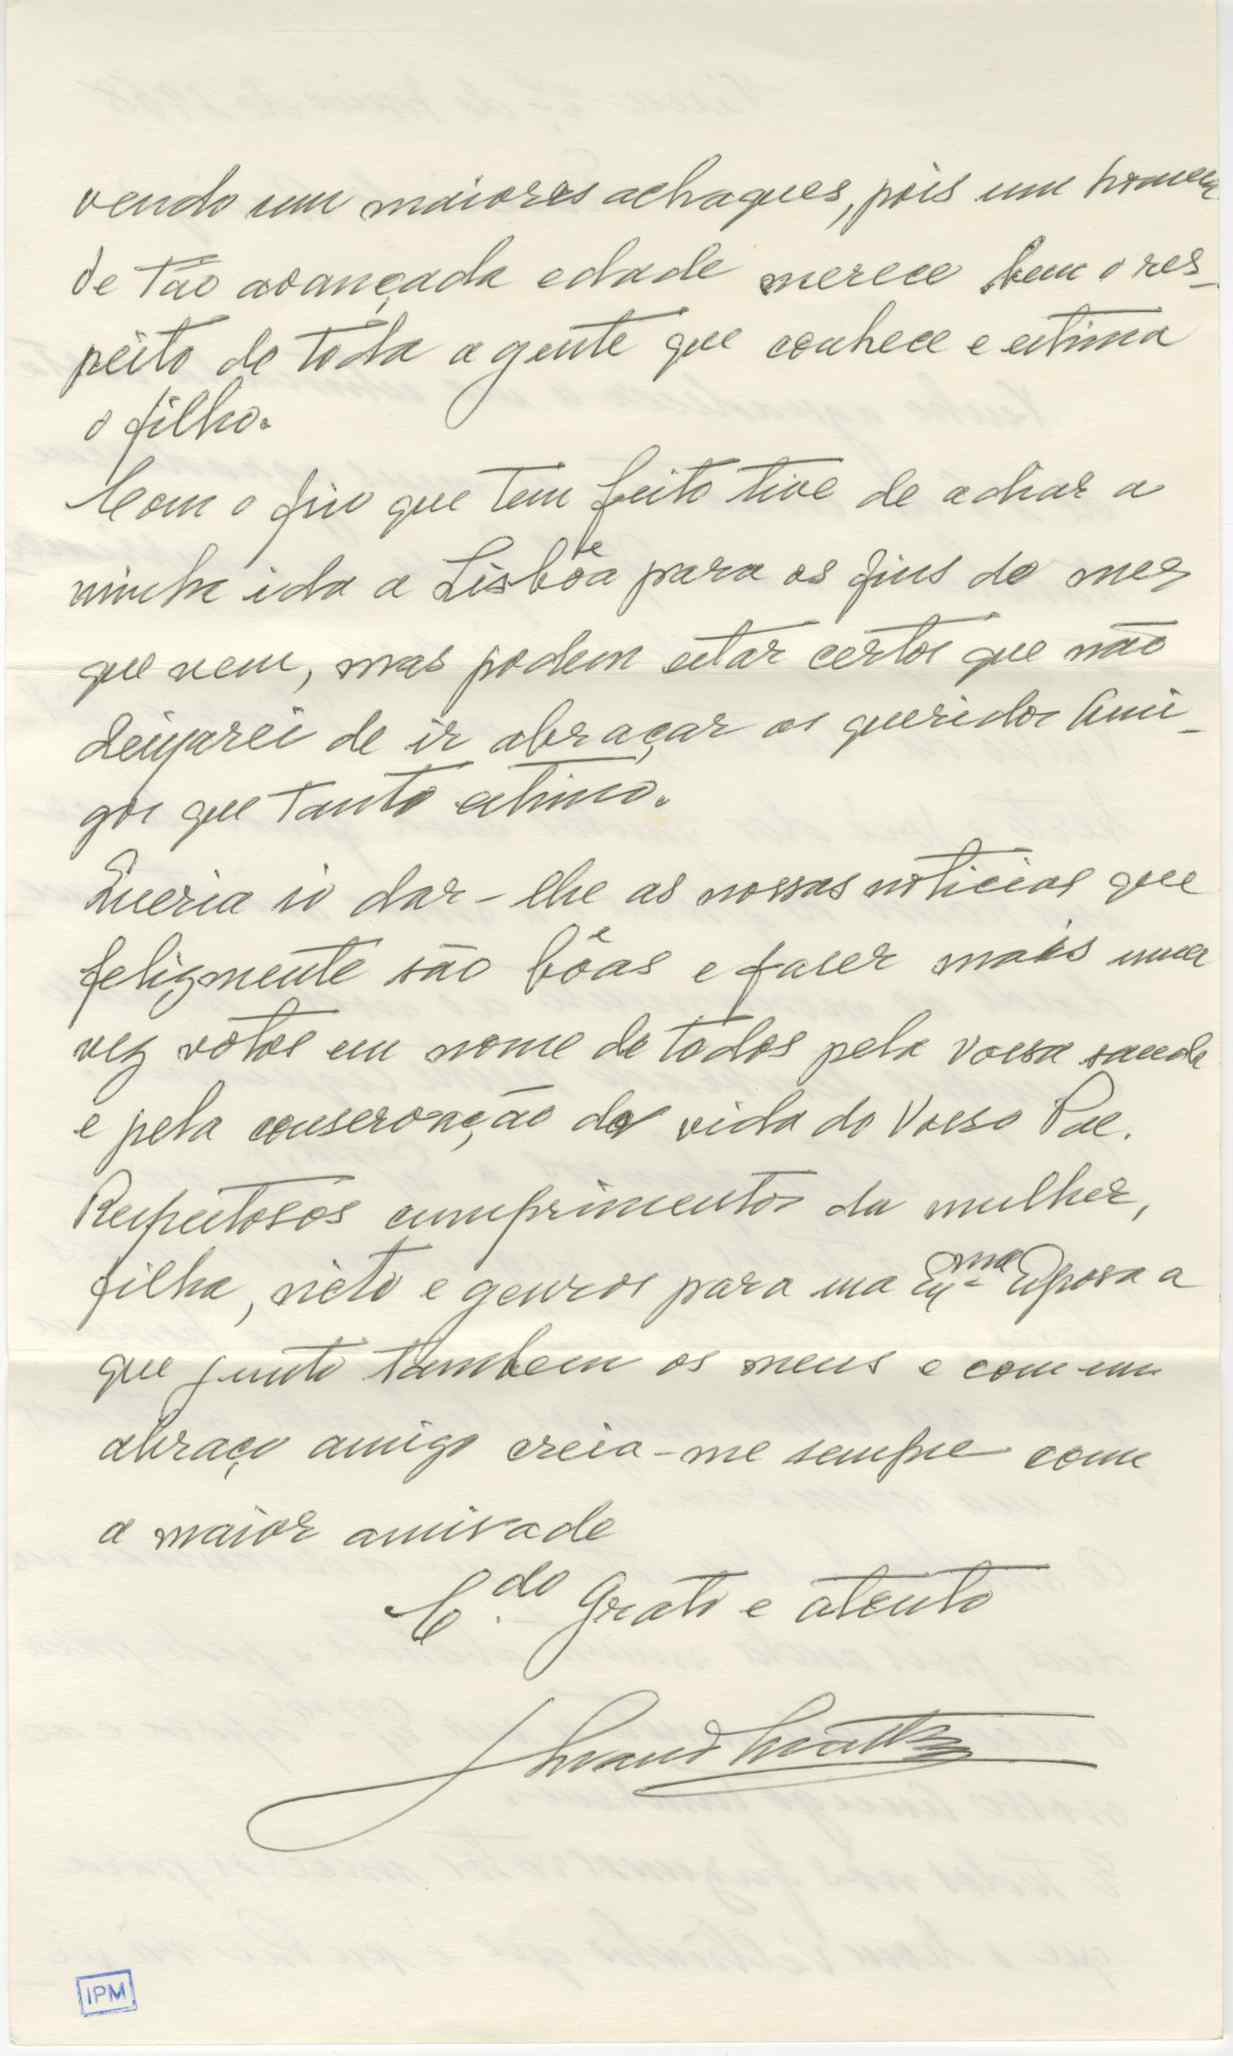 vendo sem maiores achaques, pois um homem
de tão avançada edade merece bem o res-
peito de toda a gente que conhece e estima
o filho.
Com o frio que tem feito tive de adiar a
minha ida a Lisbôa para os fins do mez
que vem, mas podem estar certos que não
deixarei de ir abraçar os queridos Ami-
gos que tanto estimo.
Queria só dar-lhe as nossas noticias que
felizmente são bôas e faser mais uma
vez votos em nome de todos pela vossa saude
e pela conservação da vida do Vosso Pae.
Respeitosos cumprimentos da mulher,
filha, neto e genros para sua Exma Esposa a
que junto tambem os meus e com um
abraço amigo creia-me sempre com
a maior amisade
C.do Grato e atento
IPM